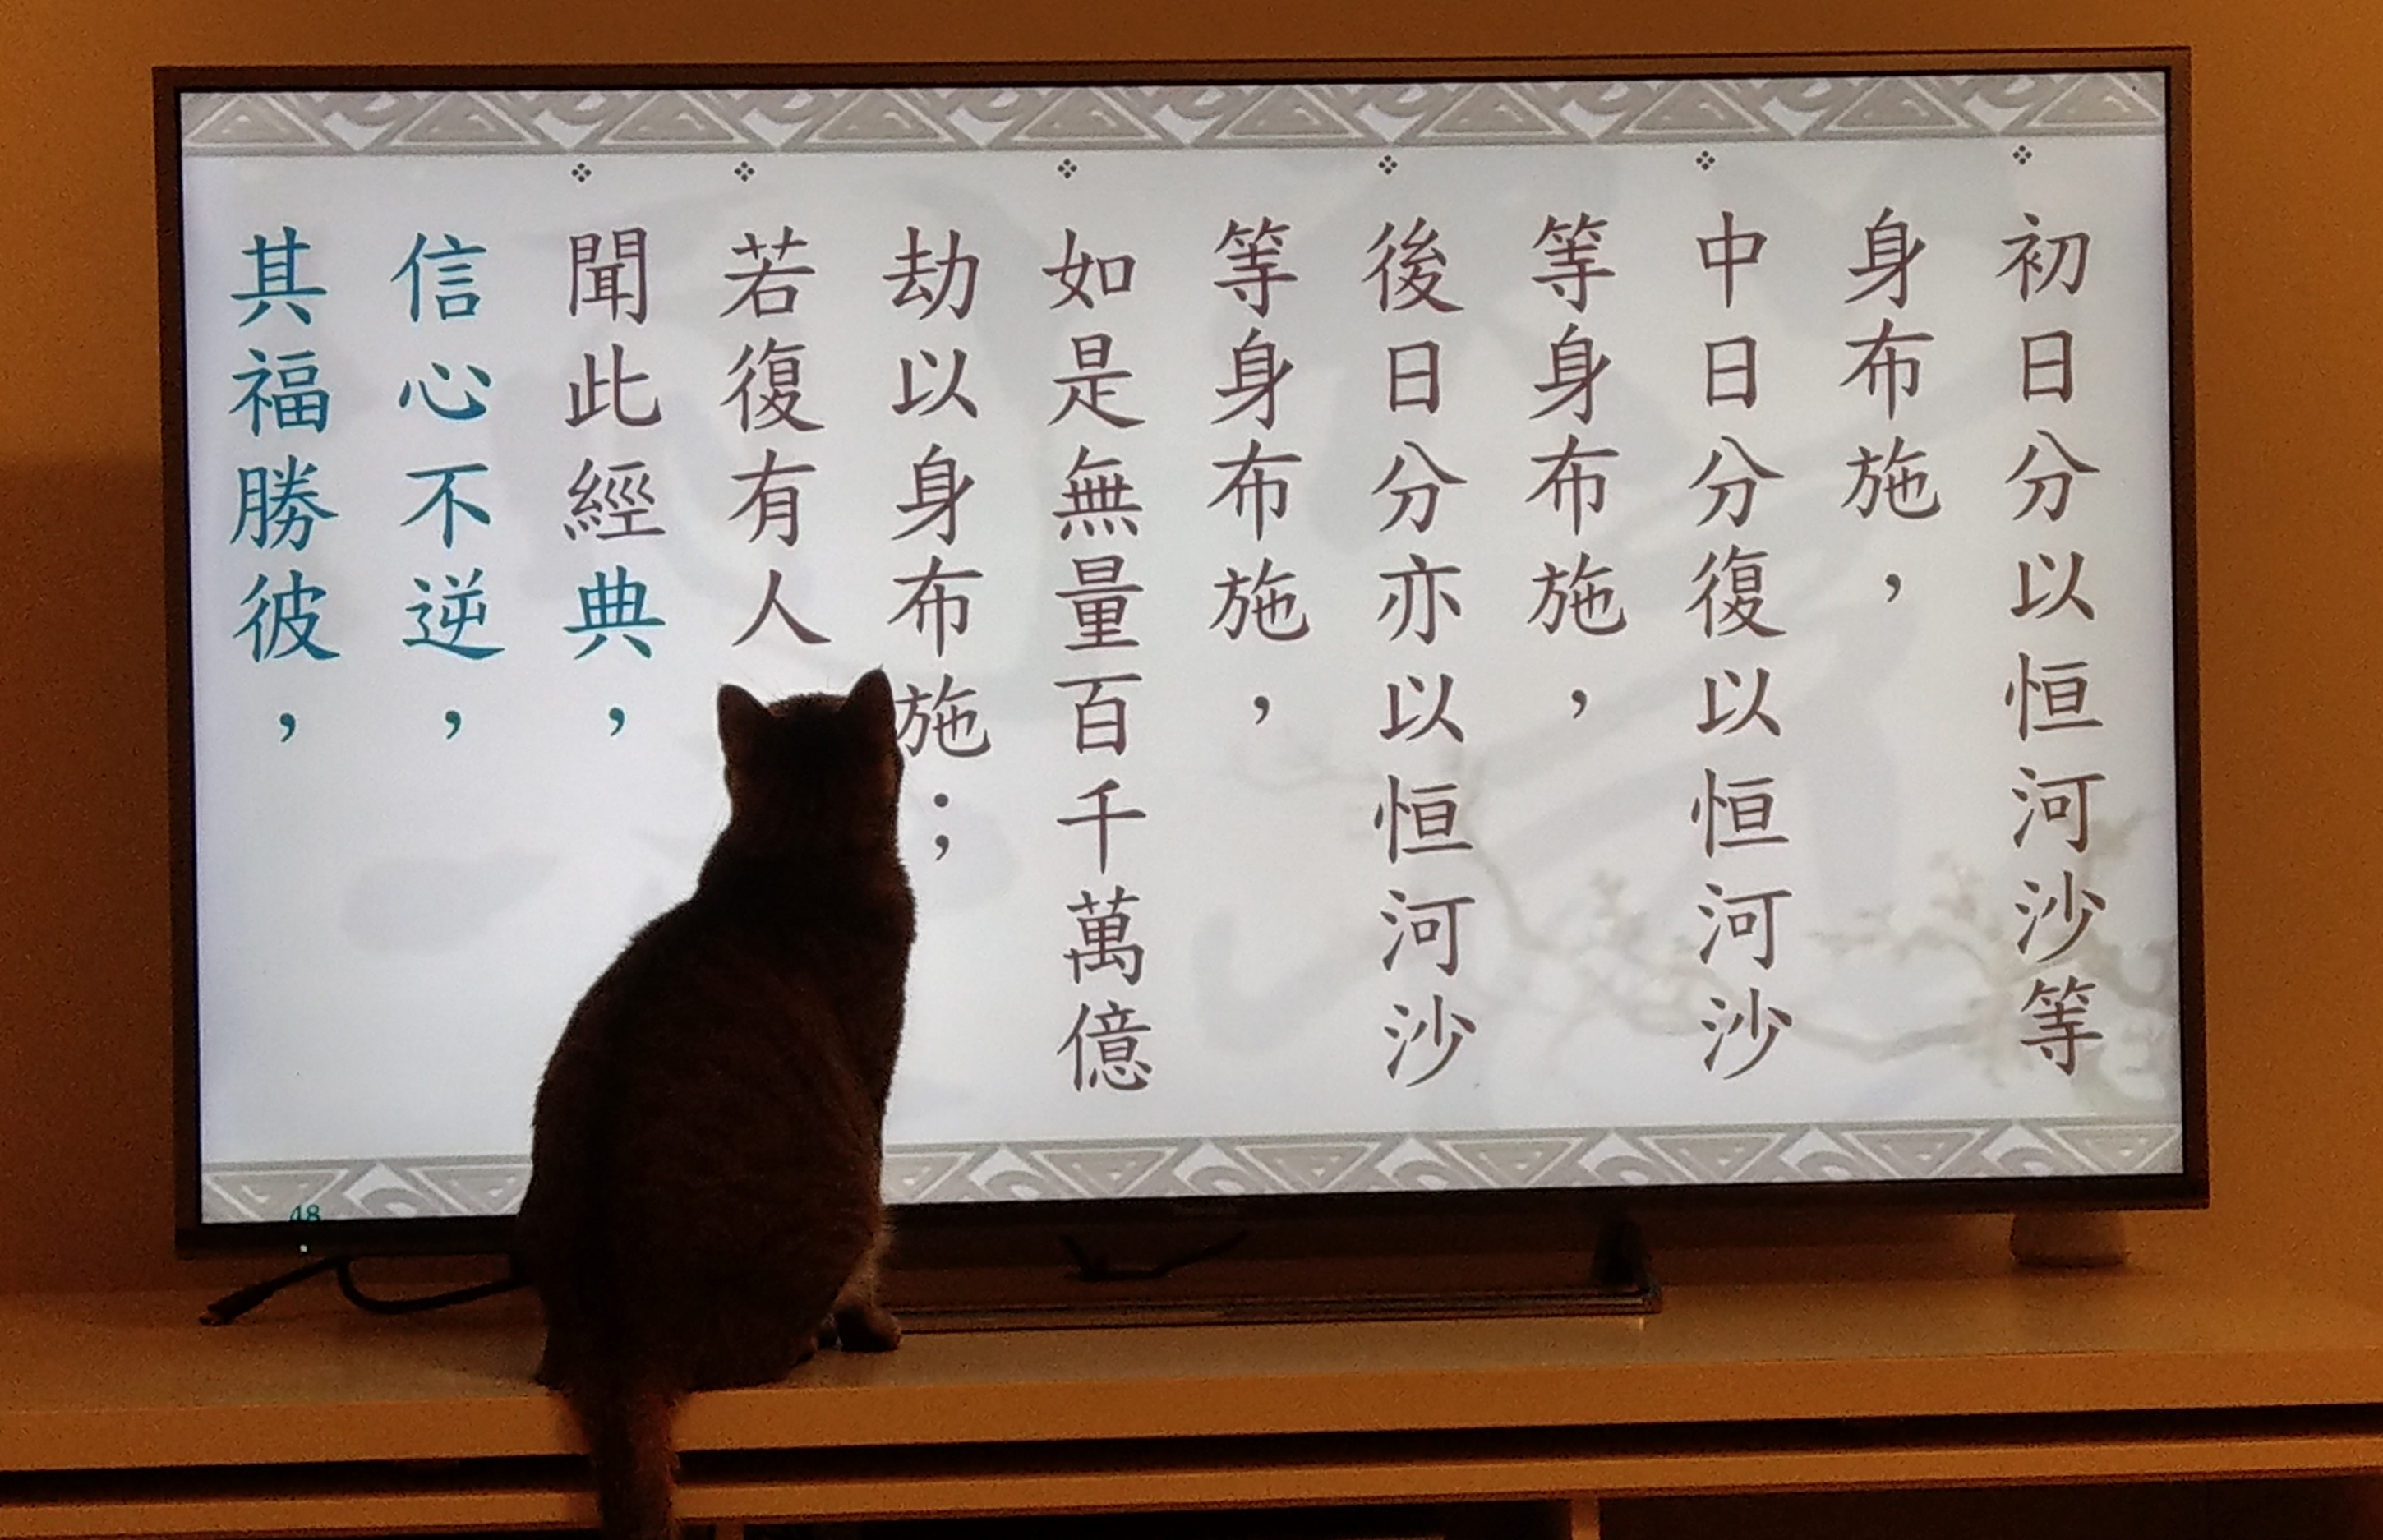 初日分以恒河沙等
身布施，
中日分復以恒河沙
等身布施，
後日分亦以恒河沙
等身布施，
如是無量百千萬億
劫以身布施；
若復有人
聞此經典，
信心不逆，
其福勝彼，
48